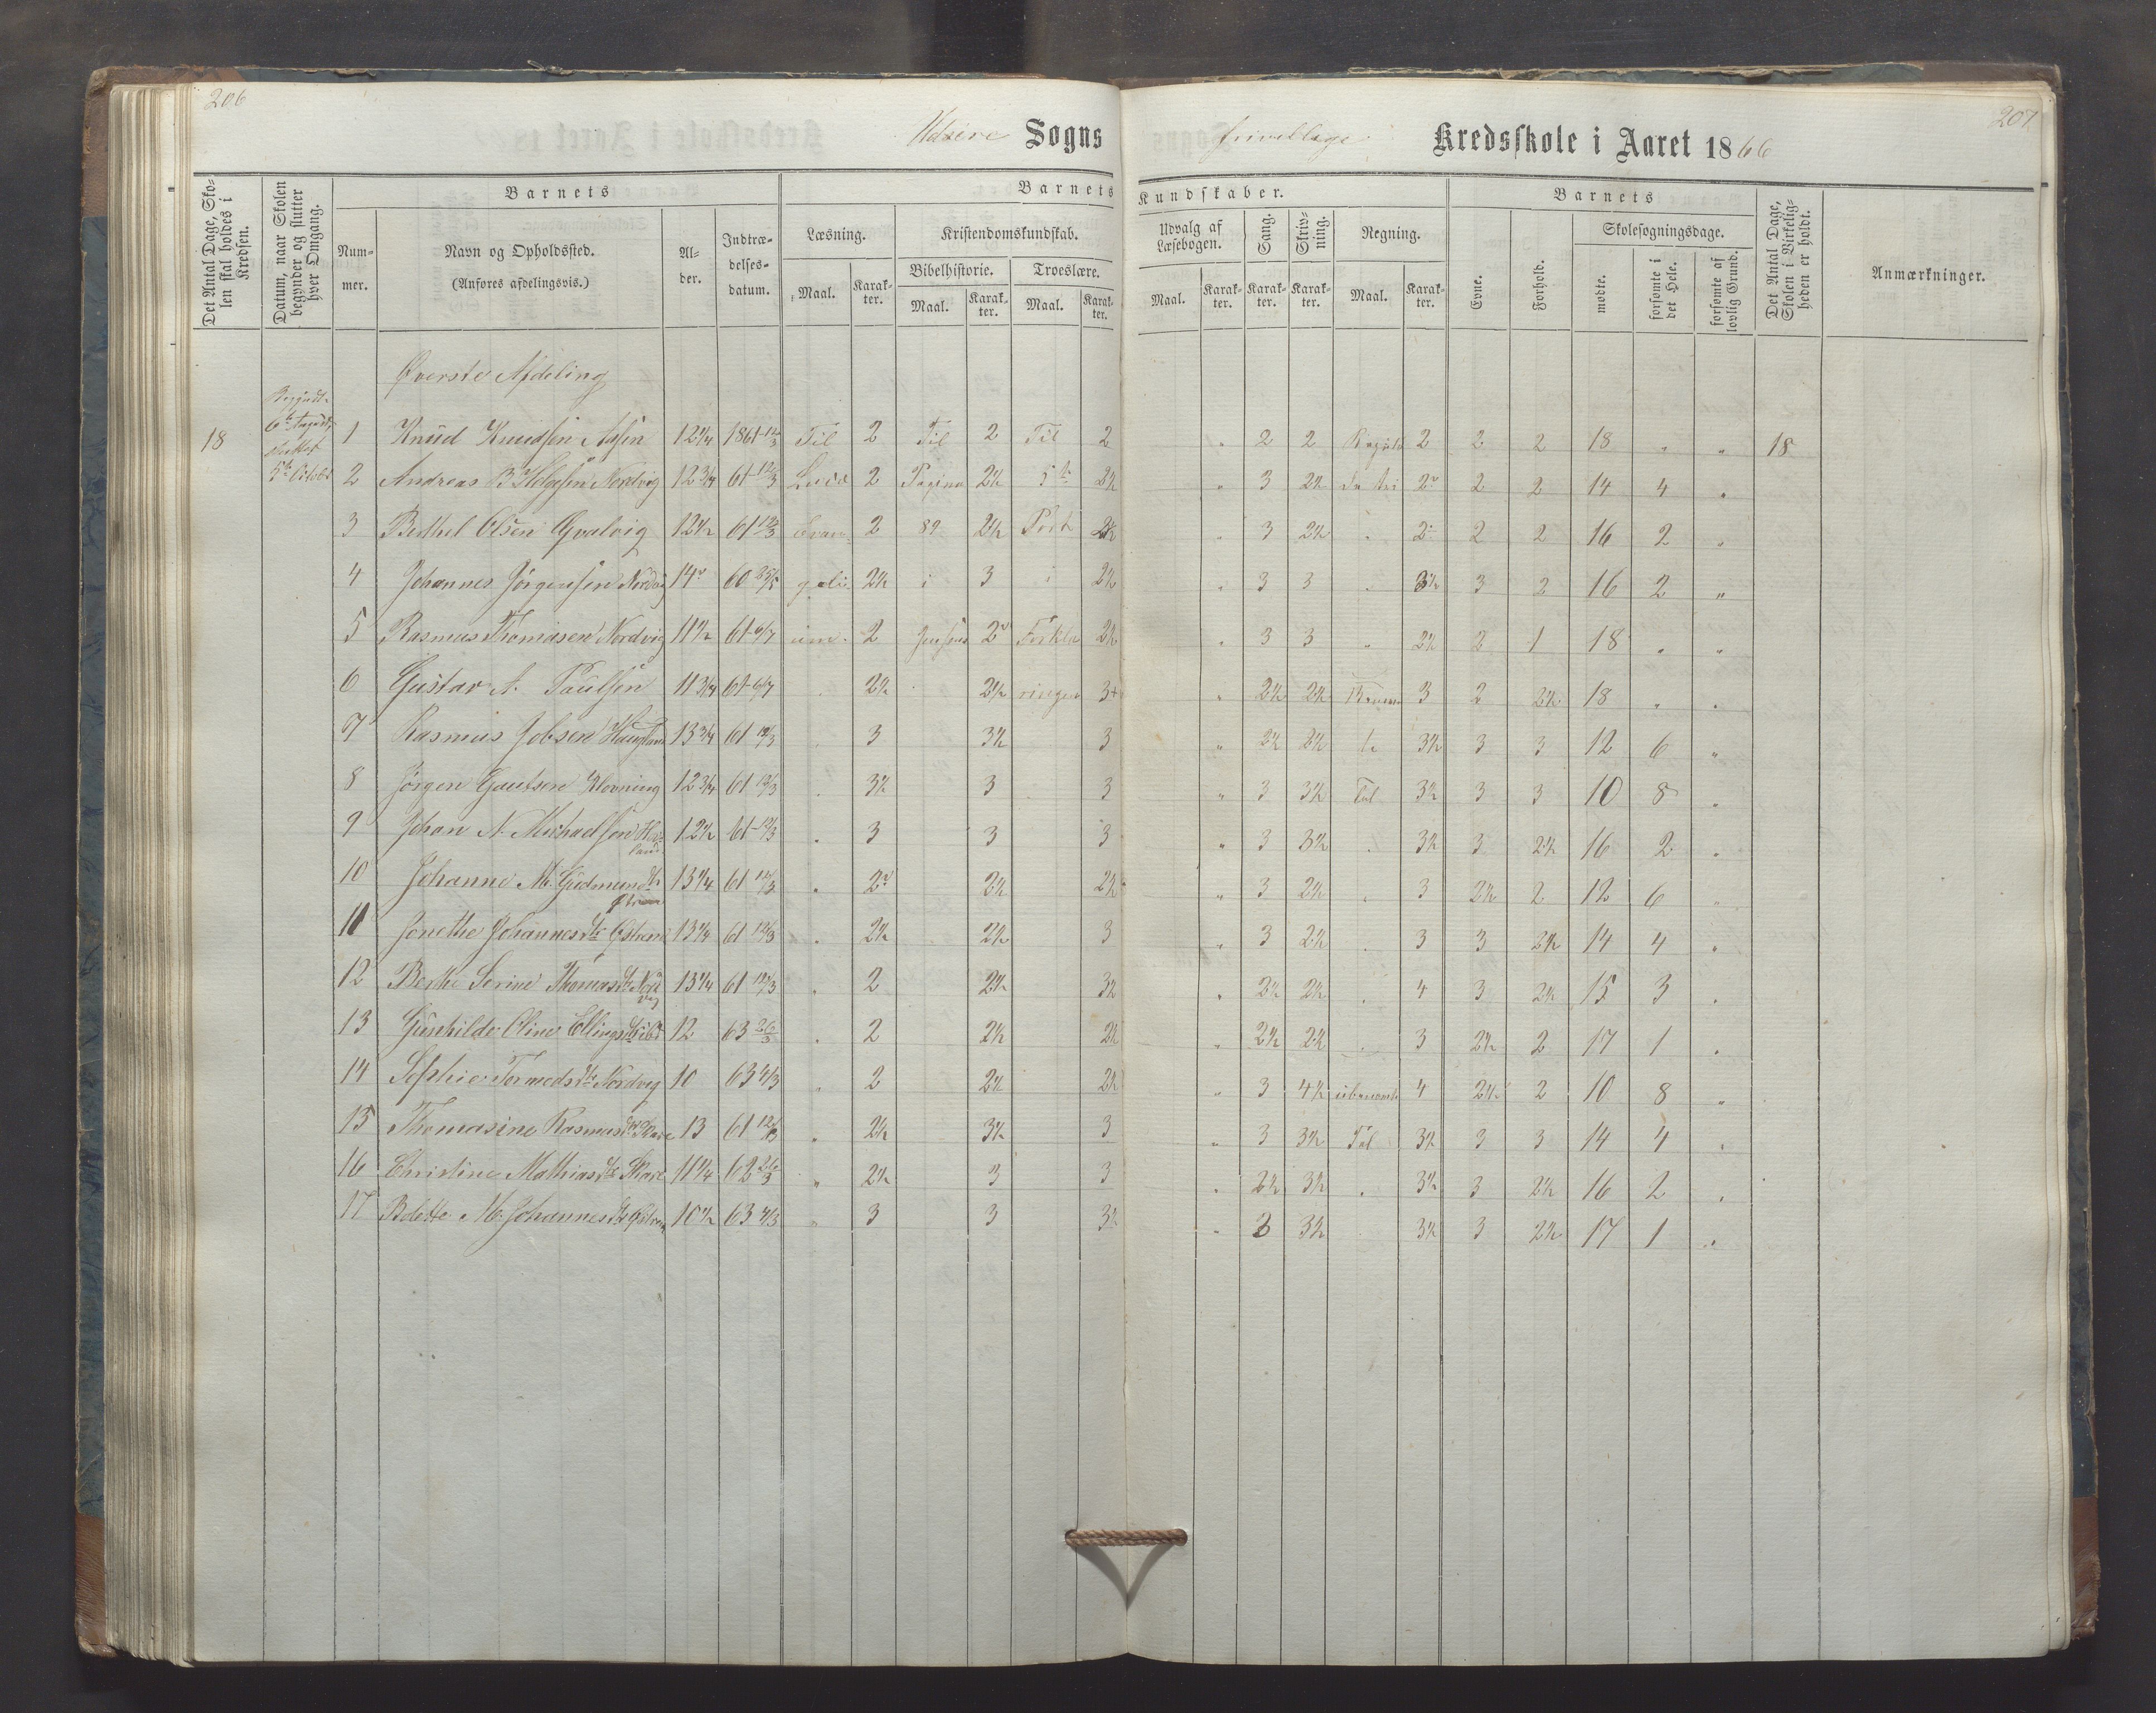 206
207
Udsire Sogns frivillige Kredsskole i Aaret 1866
Det Antal Dage, Skolen skal holdes i Kredsen.
Datum, naar Skolen begynder og slutter hver Omgang.
Barnets
Nummer.
Navn og Opholdssted.
(Anføres afdelingsvis.)
Alder.
Indtrædelsesdatum.
Barnets Kundskaber.
Læsning.
Kristendomskundskab.
Bibelhistorie.
Troeslære.
Maal.
Karakter.
Maal.
Karakter.
Maal.
Karakter.
Udvalg af Læsebogen.
Sang.
Skrivning.
Regning.
Maal.
Karakter.
Karakter.
Karakter.
Maal.
Karakter.
Barnets
Evne.
Forhold.
Skolesøgningsdage.
mødte.
forsømte i det Hele.
forsømte af lovlig Grund.
Det Antal Dage, Skolen i Virkeligheden er holdt.
Anmærkninger.
Øverste Afdeling
18 1 Knud Knudsen Aasen 12 1/4 1861 12/3 Til 2 Til 2 Til 2 " 2 2 2 2 2 18 " " 18
2 Andreas B Helgesen Nordvig 12 3/4 61 12/3 2 Pagina 2 1/2 5te 2 1/2 " 3 2 1/2 2 2 2 14 4 "
3 Berthel Olsen Qvalvig 12 1/2 61 12/3 Evan 2 89 2 1/2 Part 2 1/2 " 3 2 1/2 " 2 2 2 16 2 "
4 Johannes Jørgensen Nordvig 14 60 geli 2 1/2 i 3 i 2 1/2 " 3 3 " 3 1/2 3 2 16 2 "
5 Rasmus Thomasen Nordvig 11 1/2 61 6/7 um 2 Jensens 2 Forkla 2 1/2 " 3 3 " 2 1/2 2 1 18 " "
6 Gustav A. Paulsen 11 3/4 61 6/7 2 1/2 2 1/2 ringen 3+ " 2 1/2 2 1/2 3 2 2 1/2 18 " "
7 Rasmus Jobsen Haugland 13 3/4 61 12/3 3 3 1/2 3 " 2 1/2 2 1/2 3 1/2 3 3 12 6 "
8 Jørgen Gautsen Klovning 12 3/4 61 12/3 3 1/2 3 3 " 3 3 1/2 Tal 3 1/2 3 3 10 8 "
9 Johan N. Michaelsen 12 1/2 61 12/3 3 3 3 " 3 3 1/2 " 3 1/2 3 2 1/2 16 2 "
10 Johanne M. Gudmundsdtr 13 1/4 61 12/3 2 2 1/2 2 1/2 " 3 2 1/2 " 3 2 1/2 2 12 6 "
11 Jonethe Johannesdtr 13 1/4 61 12/3 2 1/2 2 1/2 3 " 3 2 1/2 " 3 3 2 1/2 14 4 "
12 Berthe Serine Thomasdtr Nordvig 13 1/4 61 12/3 2 2 1/2 3 1/2 " 2 1/2 2 1/2 " 4 3 2 1/2 15 3 "
13 Gunhilde Oline Ellingsdtr 12 63 26/3 2 2 1/2 2 1/2 " 2 1/2 2 1/2 " 3 2 1/2 2 17 1 "
14 Sophie Tormodsdtr Nordvig 10 63 4/3 2 2 1/2 2 1/2 " 3 4 1/2 ubenævnte 4 2 1/2 2 10 8 "
15 Thomasine Rasmusdtr Skare 13 61 12/3 2 1/2 3 1/2 3 " 3 3 1/2 Tal 3 1/2 3 3 14 4 "
16 Christine Mathiasdtr Skare 11 1/4 62 26/3 2 1/2 3 3 " 2 1/2 3 1/2 " 3 1/2 3 2 1/2 16 2 "
17 Bolette M. Johannesdtr 10 1/2 63 4/3 3 3 3 1/2 " 3 3 1/2 3 1/2 3 2 1/2 17 1 "